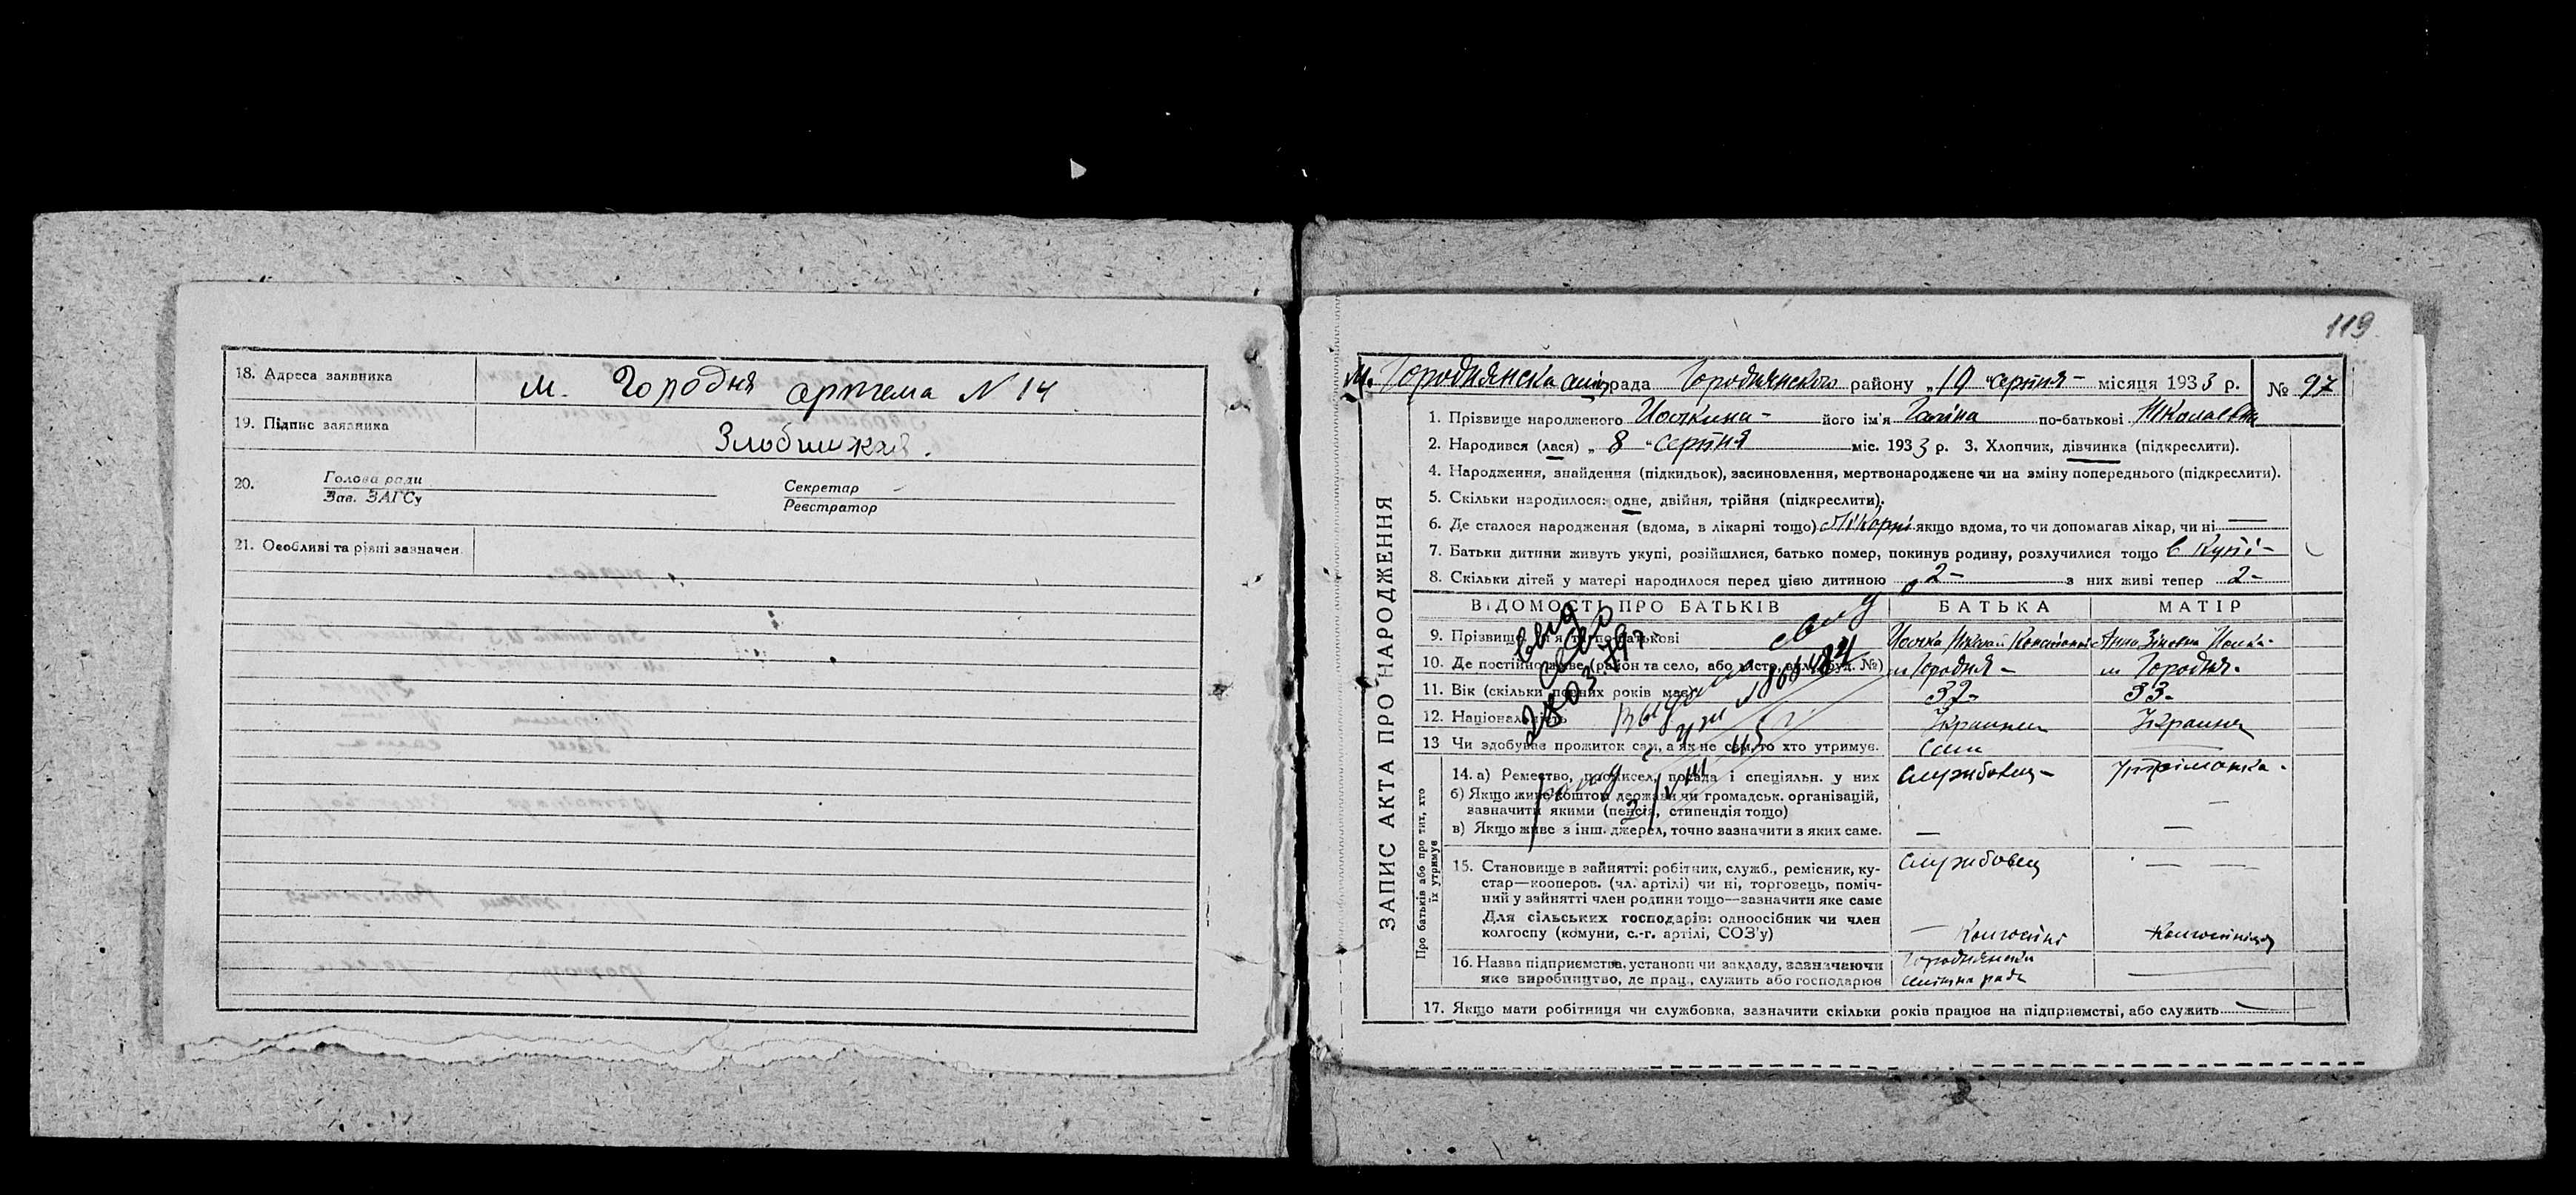 18. Адреса заявника
м. Городня артема N 14
19. Підпис заявника
Злобинская.
20. Голова ради
Зав. ЗАГСу
Секретар
Реєстратор
21. Особливі та різні зазначен.
119
м. Городнянска рада Городнянского району „10 "серпня - місяця 1933 р. № 97
ЗАПИС АКТА ПРО НАРОДЖЕННЯ
1. Прізвище народженого його ім'я Галіна по-батькові Ніколаевна
2. Народився (лася) „ 8 " серпня міс. 1933 р. 3. Хлопчик, дівчинка (підкреслити).
4. Народження, знайдення (підкидьок), засиновлення, мертвонароджене чи на зміну попереднього (підкреслити).
5. Скільки народилося: одне, двійня, трійня (підкреслити).
6. Де сталося народження (вдома, в лікарні тощо) в лікарні якщо вдома, то чи допомагав лікар, чи ні —
7. Батьки дитини живуть укупі, розійшлися, батько помер, покинув родину, розлучилися тощо в купі -
8. Скільки дітей у матері народилося перед цією дитиною 2 - з них живі тепер 2 -
ВІДОМОСТІ ПРО БАТЬКІВ БАТЬКА МАТІР
9. Прізвище, ім'я та по-батькові Анна
10. Де постійно живе (район та село, або місто, вул., буд. №) м Городня - м Городня.
11. Вік (скільки повних років має) 32 33
12. Національність Украинец Украинка
13 Чи здобуває прожиток сам, а як не сам, то хто утримує. Сам —
Про батьків або про тих, хто їх утримує
14. а) Ремество, промисел, посада і спеціяльн. у них службовец - утріманка -
б) Якщо живе коштом держави чи громадськ. організацій,
зазначити якими (пенсія, стипендія тощо) —
в) Якщо живе з інш. джерел, точно зазначити з яких саме. — —
15. Становище в зайнятті: робітник, служб., ремісник, ку- службовец — —
стар—кооперов. (чл. артілі) чи ні, торговець, поміч-
ний у зайнятті член родини тощо—зазначити яке саме
Для сільських господарів: одноосібник чи член
колгоспу (комуни, с.-г. артілі, СОЗ'у) —
16. Назва підприємства, установи чи закладу, зазначаючи Городнянска
яке виробництво, де прац., служить або господарює міська рада —
17. Якщо мати робітниця чи службовка, зазначити скільки років працює на підприємстві, або служить —